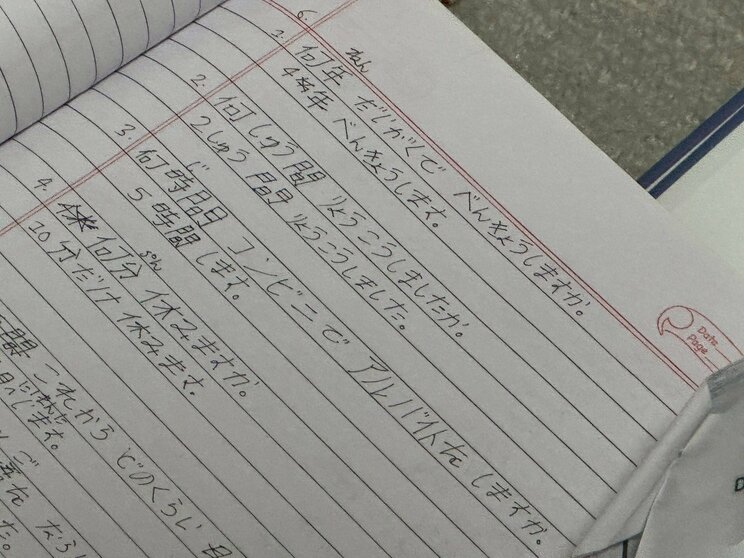 6.
1. 何年 だいがくで べんきょうしますか。
ねん
4年 べんきょうします。
2. 何しゅう間 りょうこうしましたか。
2しゅう間 りょうこうしました。
3. 何時間 コンビニで アルバイトを しますか。
じ
5時間 します。
4. 何分 休みますか。
ぷん
10分だけ 休みます。
間 これから どのくらい
します。
Date
Page